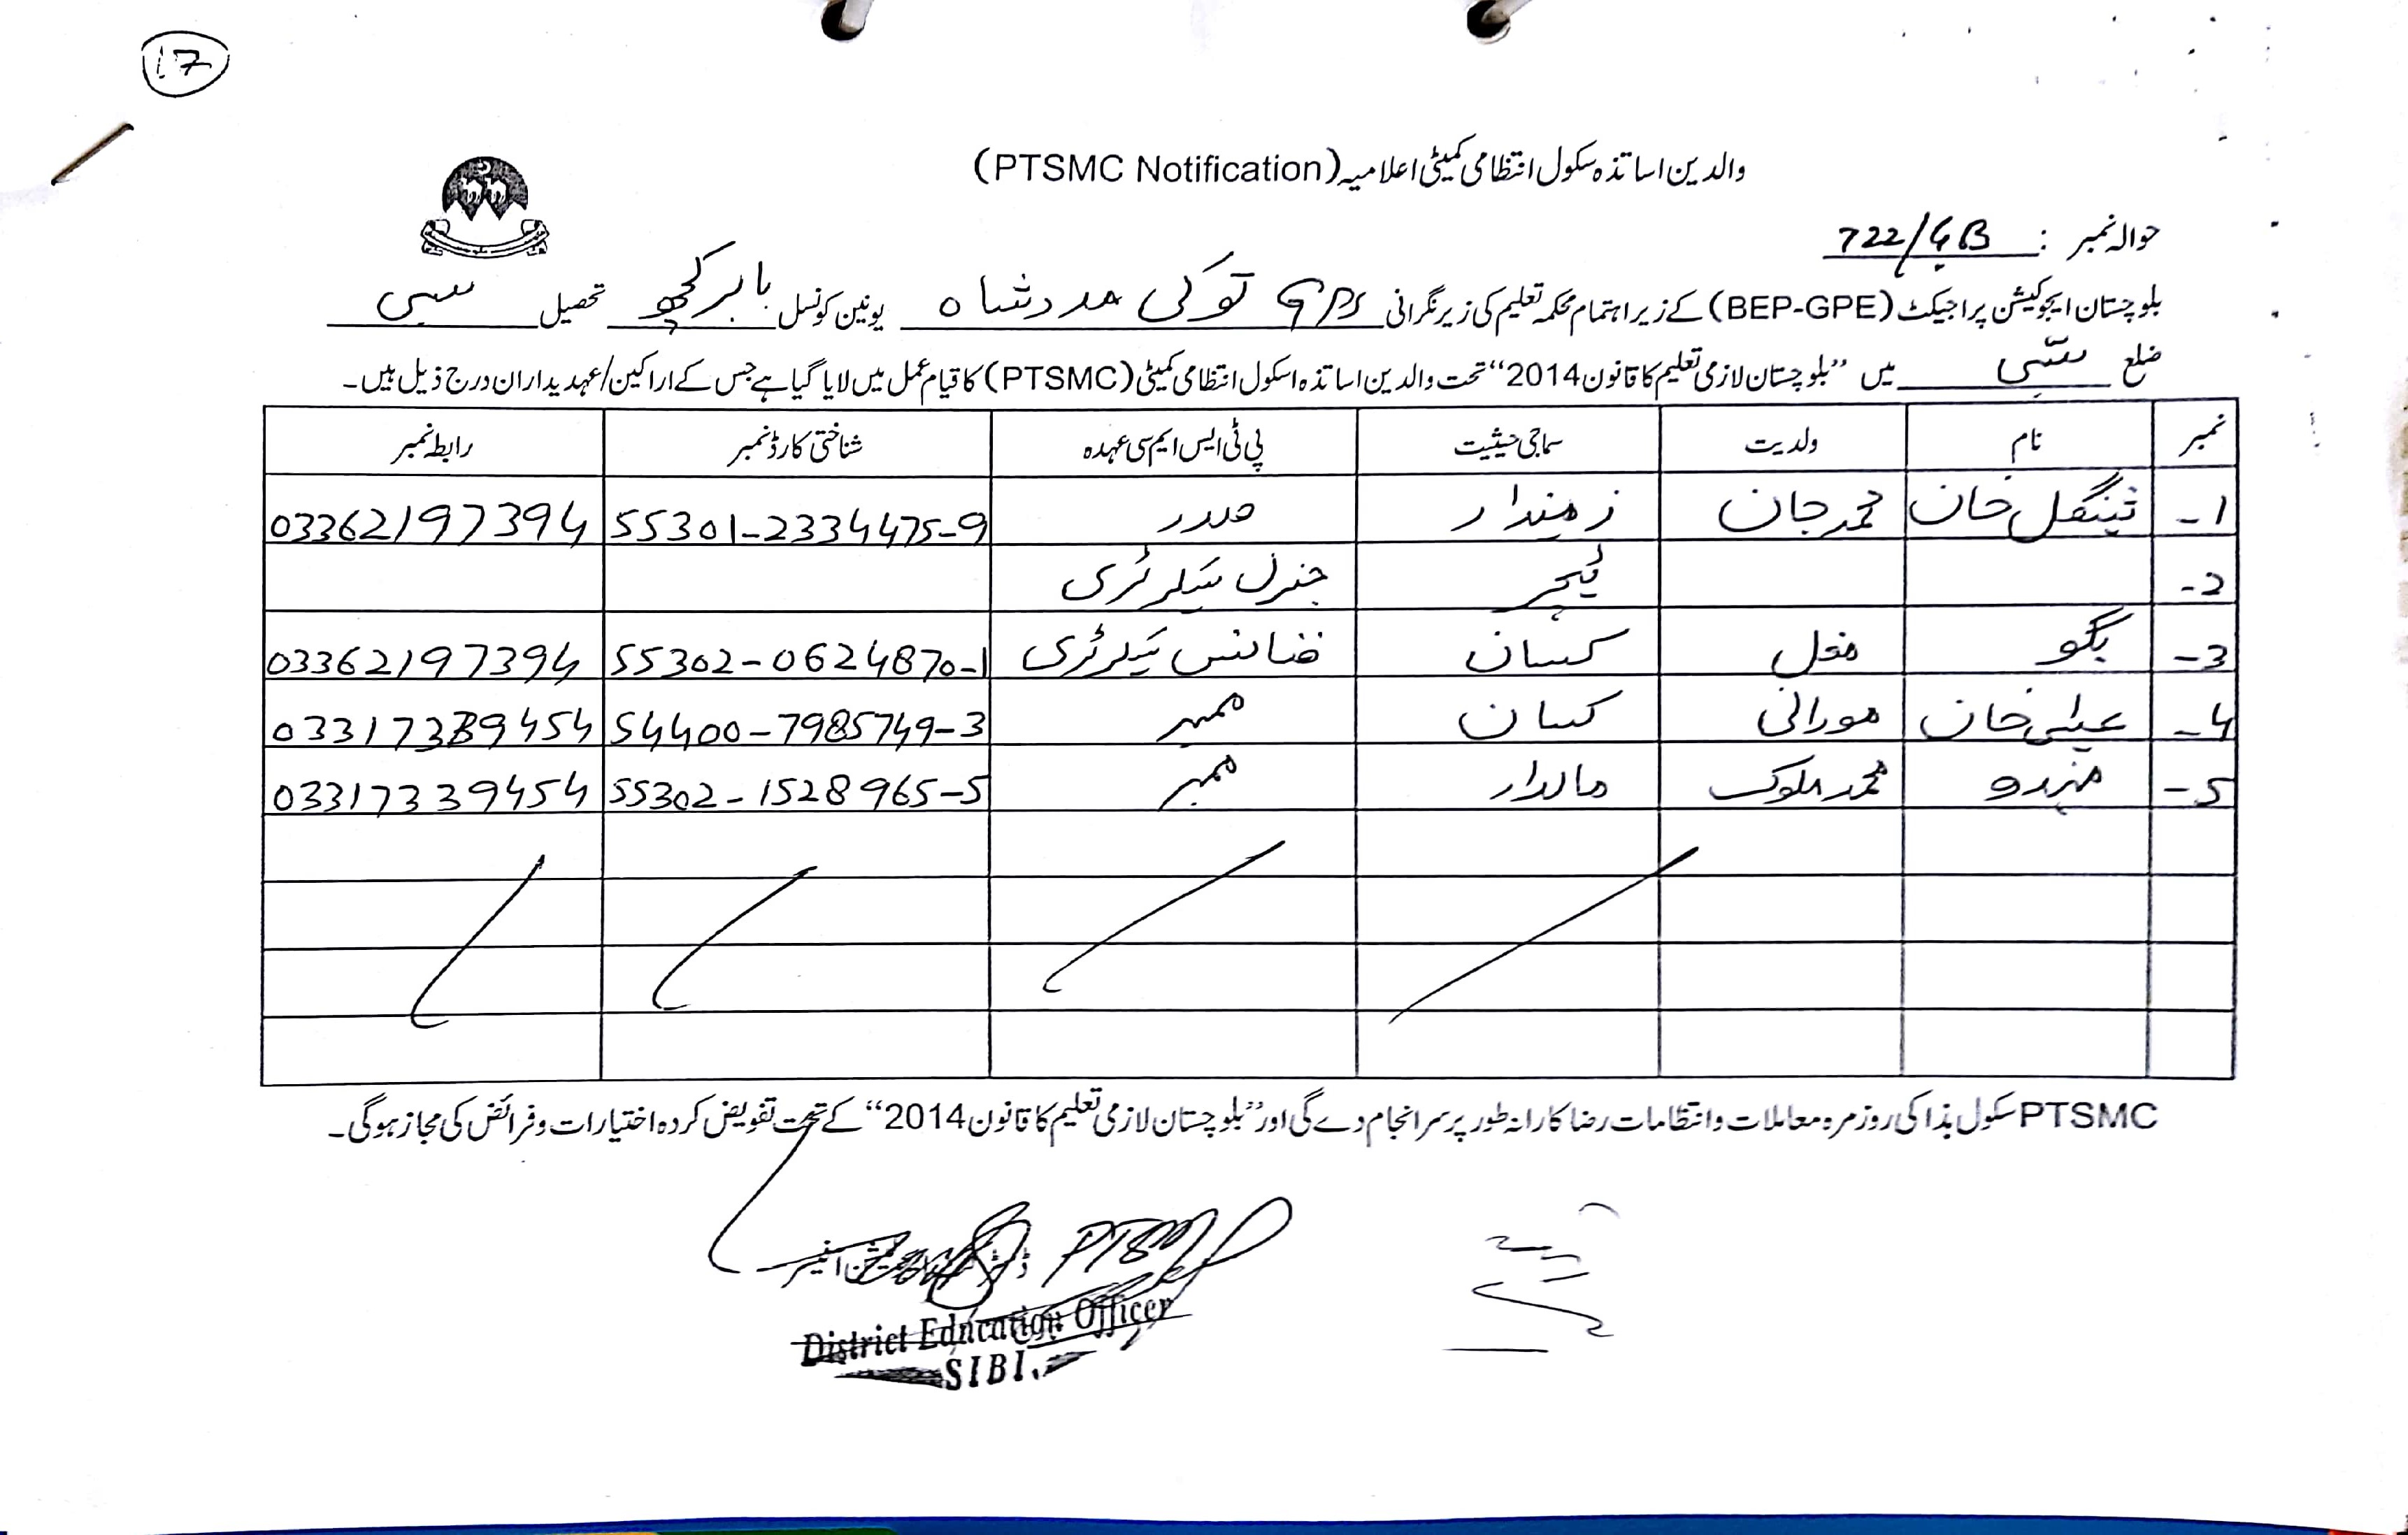 17
والدین اساتذہ سکول انتظامی کمیٹی اعلامیہ (PTSMC Notification)
حوالہ نمبر : 722/GB
بلوچستان ایجوکیشن پراجیکٹ (BEP-GPE) کے زیر اہتمام محکمہ تعلیم کی زیر نگرانی GPS توکی مدد شاہ یونین کونسل بابر کچھ تحصیل سبی
ضلع سبی میں "بلوچستان لازمی تعلیم کا قانون 2014" تحت والدین اساتذہ اسکول انتظامی کمیٹی (PTSMC) کا قیام عمل میں لایا گیا ہے جس کے اراکین/عہدیداران درج ذیل ہیں۔
نمبر نام ولدیت سماجی حیثیت پی ٹی ایس ایم سی عہدہ شناختی کارڈ نمبر رابطہ نمبر
1- خان محمد جان زمیندار صدر 55301-2334475-9 03362197394
2- ٹیچر جنرل سیکرٹری
3- بگو مغل کسان فنانس سیکرٹری 55302-0624870-1 03362197394
4- خان مورانی کسان ممبر 54400-7985749-3 03317339454
5- محمد ملوک مالدار ممبر 55302-1528965-5 03317339454
PTSMC سکول ہذا کی روزمرہ معاملات و انتظامات رضاکارانہ طور پر سرانجام دے گی اور "بلوچستان لازمی تعلیم کا قانون 2014" کے تحت تفویض کردہ اختیارات و فرائض کی مجاز ہوگی۔
PTSMC
District Education Officer
SIBI.